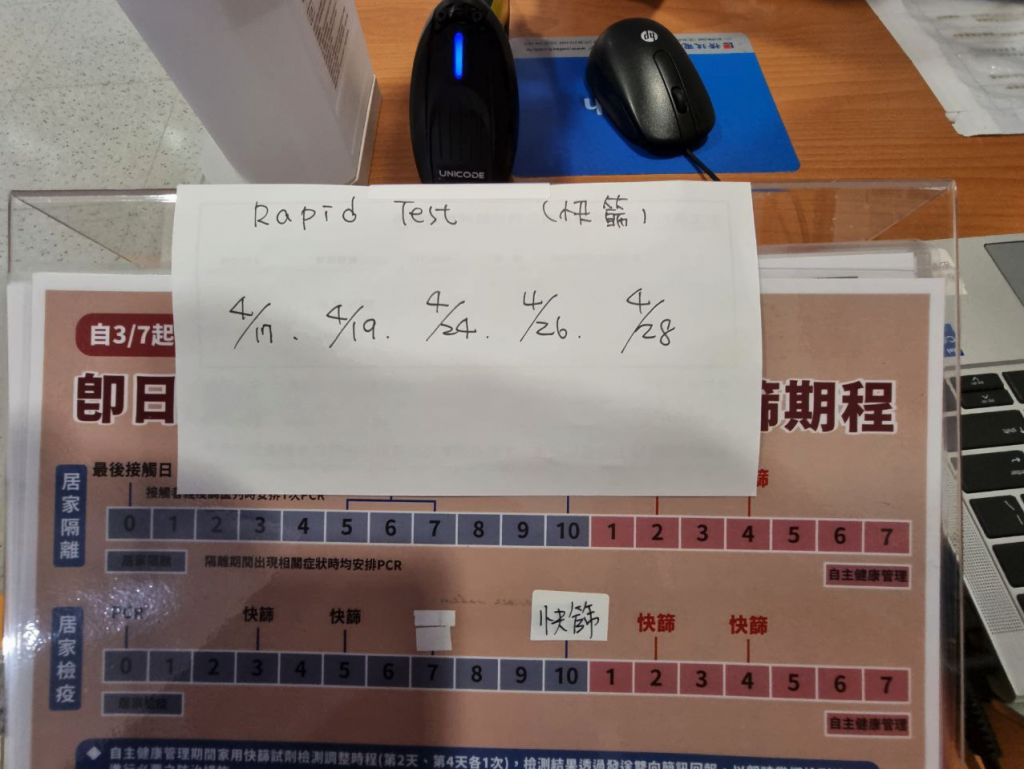 hp
UNICODE
Rapid Test (快篩)
4/17. 4/19. 4/24. 4/26. 4/28
自3/7起
即日
篩期程
居家隔離
最後接觸日
0 1 2 3 4 5 6 7 8 9 10 1 2 3 4 5 6 7
隔離期間出現相關症狀時均安排PCR
自主健康管理
居家檢疫
PCR 快篩 快篩 快篩 快篩 快篩
0 1 2 3 4 5 6 7 8 9 10 1 2 3 4 5 6 7
自主健康管理
◆ 自主健康管理期間家用快篩試劑檢測調整時程(第2天、第4天各1次)，檢測結果透過發送雙向簡訊回報，